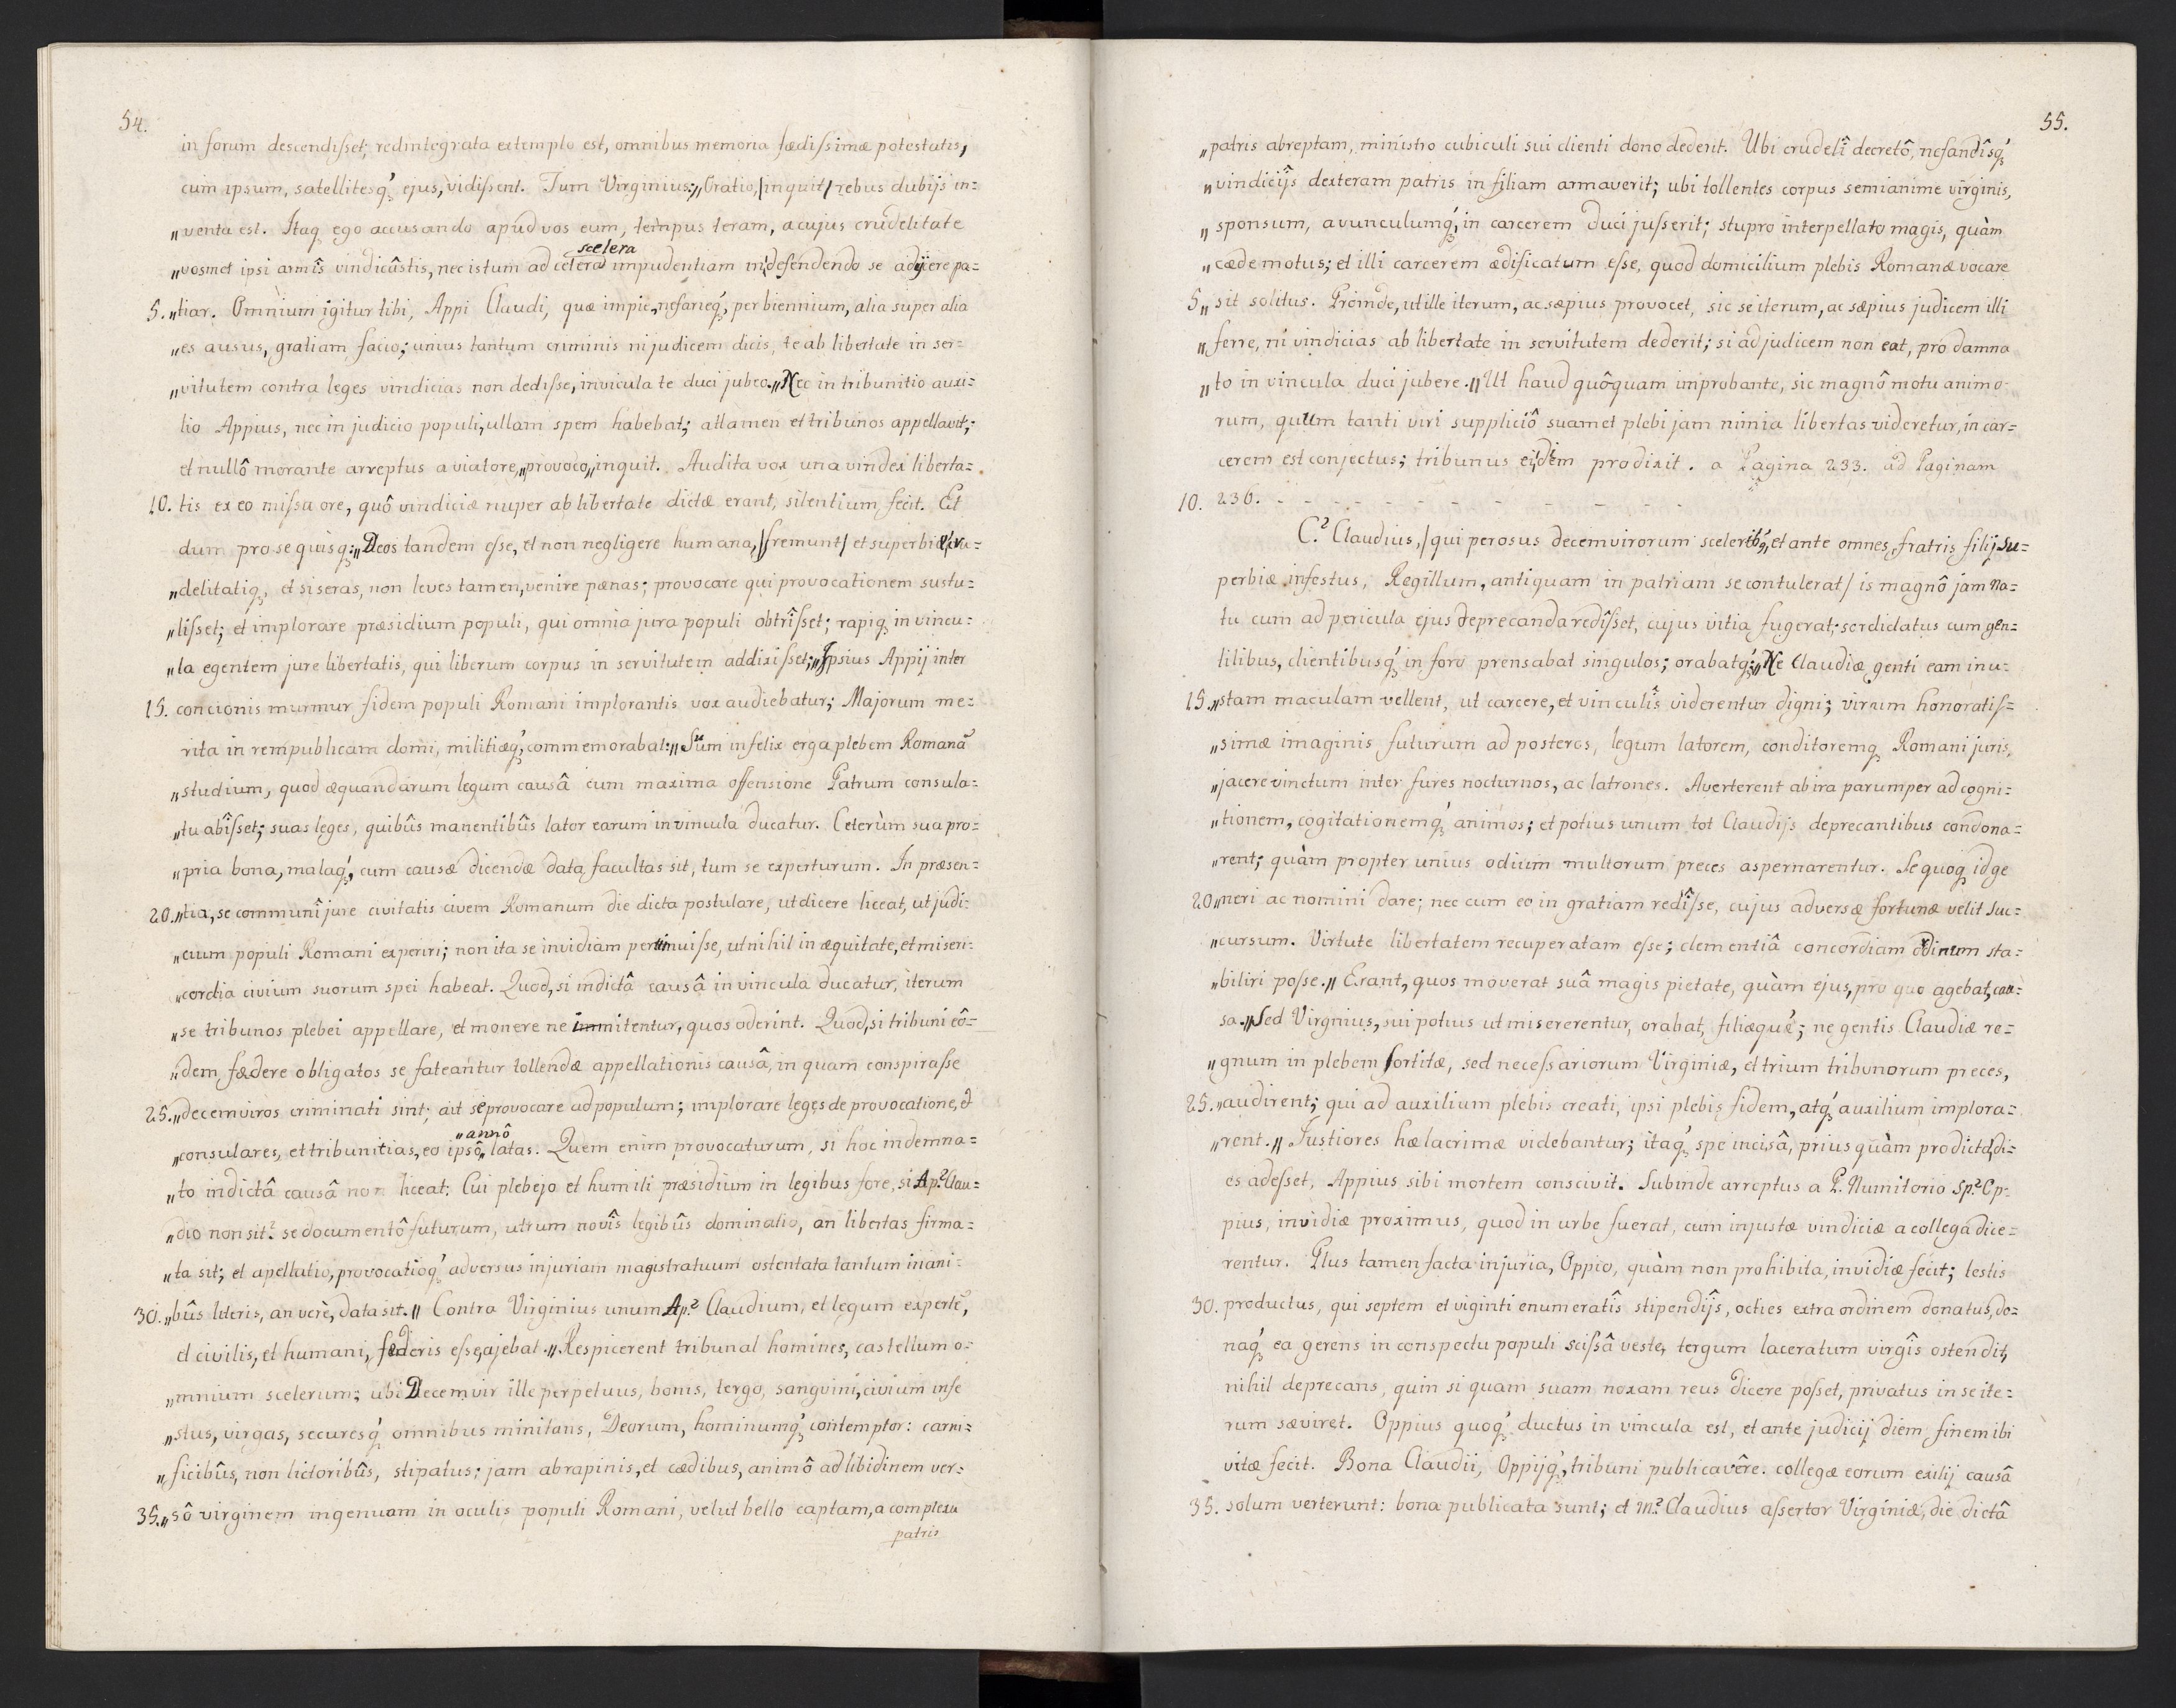 54.
in forum descendisset, redintegrata extemplo est, omnibus memoria fædissimæ potestatis,
cum ipsum, satellitesq́ꝫ ejus, vidissent. Tum Virginius: „Oratio, /inquit/ rebus dubijs in=
„venta est. Itaqꝫ ego accusando apud vos eum, tempus teram, a cujus crudelitate
scelera
„vosmet ipsi armîs vindicâstis, nec istum ad cetera impudentiam in defendendo se adijcere pa=
5. „tiar. Omnium igitur tibi, Appi Claudi, quæ impie, nefarieq́ꝫ, per biennium, alia super alia
„es ausus, gratiam facio; unius tantum criminis ni judicem dicis, te ab libertate in ser=
„vitutem contra leges vindicias non dedisse, in vicula te duci jubeo. „Nec in tribunitio auxi=
lio Appius, nec in judicio populi, ullam spem habebat; attamen et tribunos appellavit;
et nullô morante arreptus a viatore, „provoco„ inquit. Audita vox una vindex liberta=
10. tis ex eo missa ore, quô vindiciæ nuper ab libertate dictæ erant, silentium fecit. Et
dum pro se quisqꝫ: „Deos tandem esse, et non negligere humana, /fremunt/ et superbiæ cru=
„delitatiqꝫ, et si seras, non leves tamen, venire pœnas; provocare qui provocationem sustu=
„lisset; et implorare præsidium populi, qui omnia jura populi obtrîsset; rapiqꝫ in vincu=
„la egentem jure libertatis, qui liberum corpus in servitutem addixisset; „Ipsius Appij inter
15. concionis murmur fidem populi Romani implorantis vox audiebatur; Majorum me=
rita in rempublicam domi, militiæq́ꝫ, commemorabat: „Suum infelix erga plebem Romanã
„studium, quod æquandarum legum causâ cum maxima offensione Patrum consula=
„tu abîsset; suas leges, quibûs manentibûs lator earum in vincula ducatur. Ceterùm sua pro=
„pria bona, malaq́ꝫ, cum causæ dicendæ data facultas sit, tum se experturum. In præsen=
20. „tia, se communî jure civitatis civem Romanum die dicta postulare, ut dicere liceat, ut judi=
„cium populi Romani experiri; non ita se invidiam pertimuisse, ut nihil in æquitate, et miseri=
„cordia civium suorum spei habeat. Quod, si indictâ causâ in vincula ducatur, iterum
„se tribunos plebei appellare, et monere ne immitentur, quos oderint. Quod, si tribuni eô=
„dem fædere obligatos se fateantur tollendæ appellationis causâ, in quam conspirasse
25. „decemviros criminati sint; ait se provocare ad populum; implorare leges de provocatione, et
„annô
„consulares, et tribunitias, eo ipsô, latas. Quem enim provocaturum, si hoc indemna=
„to indictâ causâ non liceat. Cui plebejo et humili præsidium in legibus fore, si Ap.º Clau=
„dio non sit? se documentô futurum, utrum novîs legibûs dominatio, an libertas firma=
„ta sit; et apellatio, provocatioq́ꝫ adversus injuriam magistratuum ostentata tantum inani=
30. „bûs literis, an verè, data sit.„ Contra Virginius unum Ap.º Claudium, et legum expertẽ,
et civilis, et humani, fœderis esse, ajebat. „Respicerent tribunal homines, castellum o=
„mnium scelerum; ubi Decemvir ille perpetuus, bonis, tergo, sanguini, civium infe
„stus, virgas, securesq́ꝫ omnibus minitans, Deorum, hominumq́ꝫ contemptor: carni=
„ficibûs, non lictoribûs, stipatus; jam ab rapinis, et cædibus, animô ad libidinem ver=
35. „sô virginem ingenuam in oculis populi Romani, velut bello captam, a complexu
patris
55.
„patris abreptam, ministro cubiculi sui clienti dono dederit. Ubi crudelî decretô, nefandîsq́ꝫ
„vindicijs dexteram patris in filiam armaverit; ubi tollentes corpus semianime virginis,
„sponsum, avunculumq́ꝫ, in carcerem duci jusserit; stupro interpellato magis, quàm
„cæde motus; et illi carcerem ædificatum esse, quod domicilium plebis Romanæ vocare
5. „sit solitus. Proinde, ut ille iterum, ac sæpius provocet, sic se iterum, ac sæpius judicem illi
„ferre, ni vindicias ab libertate in servitutem dederit; si ad judicem non eat, pro damna
„to in vincula duci jubere. „Ut haud quôquam improbante, sic magnô motu animo-
rum, quum tanti viri suppliciô suamet plebi jam nimia libertas videretur, in car=
cerem est conjectus; tribunus ei diem prodixit. a Pagina 233. ad Paginam
10. 236. - - - - - - - - - - -
C.º Claudius, /qui perosus decemvirorum sceleribꝰ, et ante omnes, fratris filij su=
perbiæ infestus, Regillum, antiquam in patriam se contulerat/ is magnô jam na=
tu cum ad pericula ejus deprecanda redîsset, cujus vitia fugerat; sordidatus cum gen=
tilibus, clientibusq́ꝫ in foro prensabat singulos; orabatq́ꝫ: „Ne Claudiæ genti eam inu=
15. „stam maculam vellent, ut carcere, et vinculîs viderentur digni; virum honoratis=
„simæ imaginis futurum ad posteros, legum latorem, conditoremqꝫ Romani juris,
„jacere vinctum inter fures nocturnos, ac latrones. Averterent ab ira parumper ad cogni=
„tionem, cogitationemq́ꝫ animos; et potius unum tot Claudijs deprecantibus condona=
„rent; quàm propter unius odium multorum preces aspernarentur. Se quoqꝫ id ge
20. „neri ac nomini dare; nec cum eo in gratiam redîsse, cujus adversæ fortunæ velit suc=
„cursum. Virtute libertatem recuperatam esse; clementiâ concordiam ordinum sta=
„biliri posse.„ Erant, quos moverat suâ magis pietate, quàm ejus, pro quo agebat, cau=
sa. „Sed Virgnius, sui potius ut misererentur, orabat, filiæquè; ne gentis Claudiæ re=
„gnum in plebem sortitæ, sed necessariorum Virginiæ, et trium tribunorum preces,
25. „audirent; qui ad auxilium plebis creati, ipsi plebis fidem, atq́ꝫ auxilium implora=
„rent.„ Justiores hæ lacrimæ videbantur; itaq́ꝫ spe incisâ, prius quàm prodicta di=
es adesset, Appius sibi mortem conscivit. Subinde arreptus a P. Numitorio Sp.º Op=
pius, invidiæ proximus, quod in urbe fuerat, cum injustæ vindiciæ a collega dice=
rentur. Plus tamen facta injuria, Oppio, quàm non prohibita, invidiæ fecit; testis
30. productus, qui septem et viginti enumeratîs stipendijs, octies extra ordinem donatus, do=
naq́ꝫ ea gerens in conspectu populi scissâ veste, tergum laceratum virgîs ostendit,
nihil deprecans, quin si quam suam noxam reus dicere posset, privatus in se ite=
rum sæviret. Oppius quoq́ꝫ ductus in vincula est, et ante judicij diem finem ibi
vitæ fecit. Bona Claudii, Oppijq́ꝫ, tribuni publicavêre. collegæ eorum exilij causâ
35. solum verterunt: bona publicata sunt; et M.º Claudius assertor Virginiæ, die dictâ